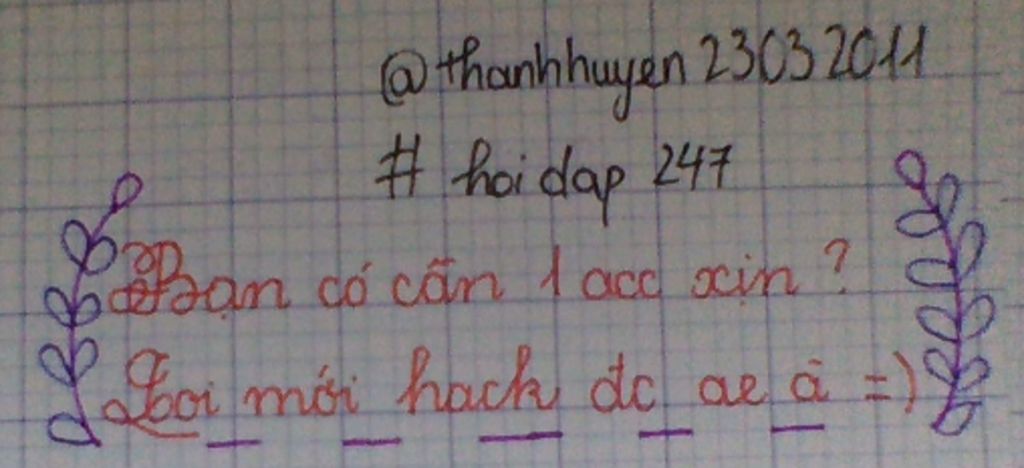 @thanhhuyen23032011
# hoidap 247
Bạn có cần 1 acc xịn ?
Toi mới hack dc ae à =)